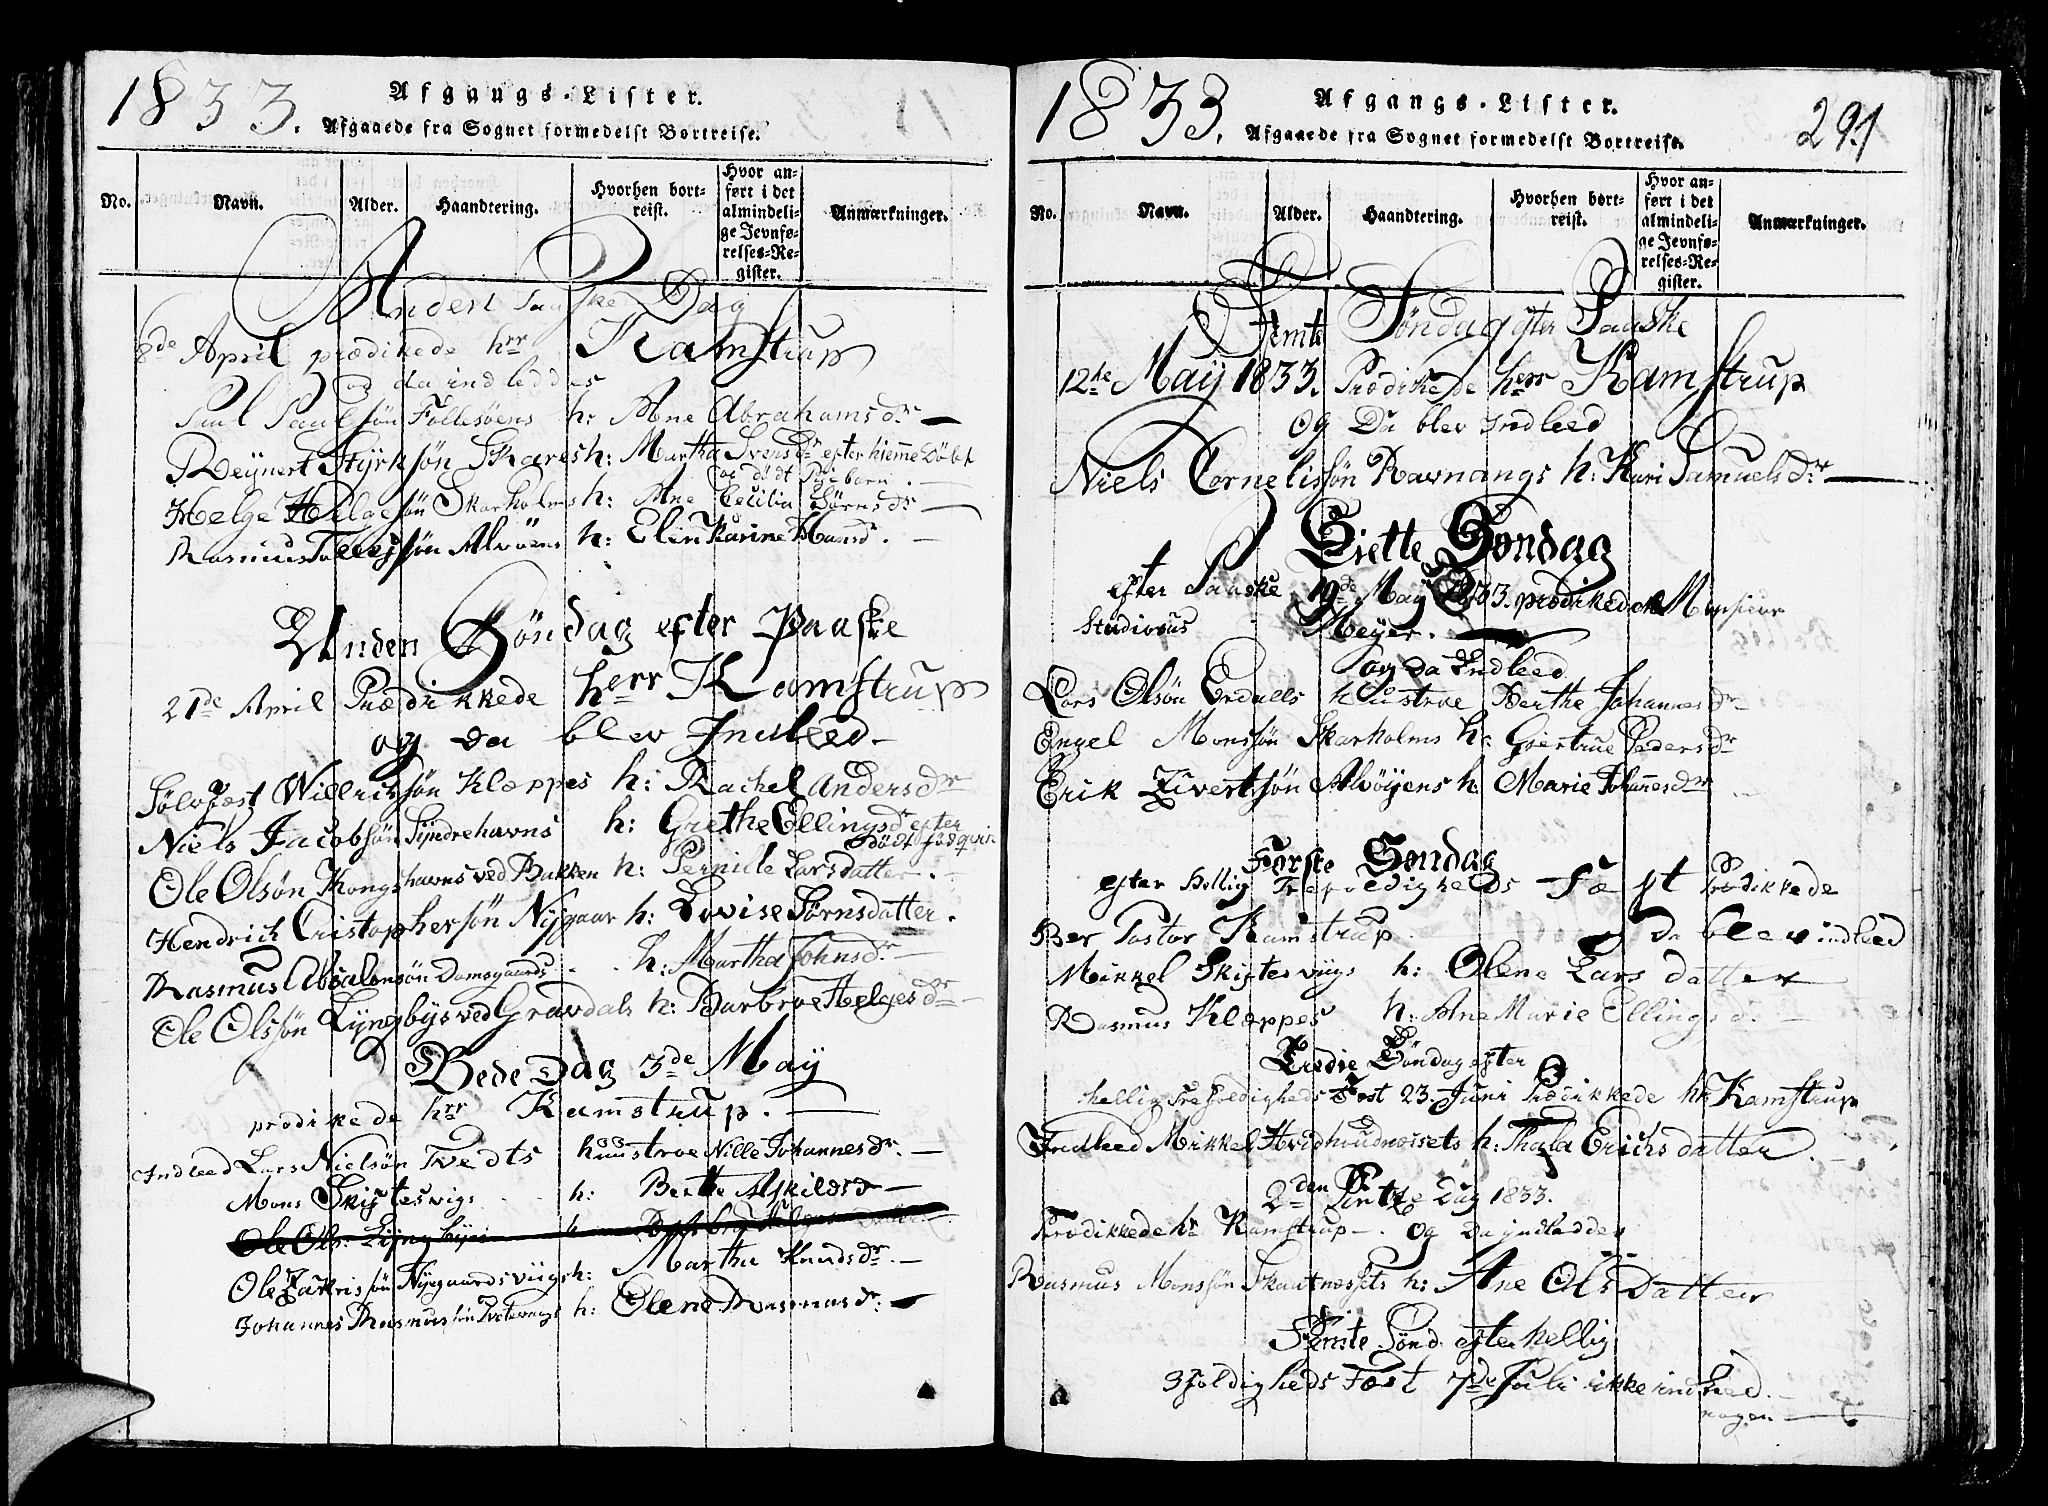 1833.
Afgangs-Lister.
Afgaaede fra Sognet formedelst Bortreise.
No.
Navn.
Alder.
Haandtering.
Hvorhen bort-
reist.
Hvor an-
ført i det
almindeli-
ge Jevnfø-
relses-Re-
gister.
Anmærkninger.
Anden Paaske Dag
8de April prædikede hrr Kamstrup
og da indleddes
Paul Paulsøn Follesøens h: Ane Abrahamsdr
Reÿnert Stÿrksøn Skares h: Martha Iversdr efter hiemme Døbt
og dødt Pigebarn.
Helge Helgesøn Skarholms h: Ane Cecilia Børnsdr
Rasmus Tollejsøn Alvöens h: Elen Karine Hansd.
Anden Søndag efter Paaske
21de April Prædikkede herr Kamstrup
og da blev Indleed
Sølvfæst Willichsøn Klæppes h: Rachel Andersdr
Niels Jacobsøn Sÿndrehavns h: Grethe Ellingsdr efter
dødt født
Ole Olsøn Kongshavns ved Bakken h: Pernille Larsdatter.
Hendrich Cristophersøn Nÿgaar h: Lovise Børnsdatter.
Rasmus Absalonsøn Damsgaards h: Martha Johnsdr
Ole Olssøn Lÿngbÿs ved Gravdals h: Barbroe Helgesdr
Bede Dag 3de Maÿ
prædikede hrr Kamstrup.
Indleed Lars Nielsøn Tvedts huustroe Nille Johannesdr.
Mons Skiftesvigs h: Berthe Askildsdr
Ole Ols: Lÿngbÿes h
Ole Zakrissøn Nÿegaardsviigs h: Martha Knudsdr.
Johannes Rasmussøn h: Olene Rasmusdr:
1833.
Afgangs-Lister.
Afgaaede fra Sognet formedelst Bortreise.
291
No.
Navn.
Alder.
Haandtering.
Hvorhen bort-
reist.
Hvor an-
ført i det
almindeli-
ge Jevnfø-
relses-Re-
gister.
Anmærkninger.
Femte Søndag efter Paaske
12te Maÿ 1833. Prædikede herr Kamstrup
og Da blev Indleed
Niels Cornelissøn Ravnangs h: Kari Samuelsdr
Siette Søndag
efter Paaske 19de Maÿ 1833. prædikede Monsieur
Studiosus Meÿer.
og da Indleed
Lars Olsøn Erdalls Hustroe Berthe Johannesdr
Engel Monssøn Skarholms h: Giertrue Pedersdr
Erik Zivertsøn Alvöÿens h. Marie Johannesdr
Første Søndag
efter Hellig Trefoldigheds Fæst Prædikkede
Her Pastor Kamstrup og da blev indleed
Mikkel Skiftesviigs h: Olene Lars datter
Rasmus Klæppes h: Ane Marie Ellingsd.
Tredie Søndag efter
hellig Trefoldigheds Fest 23. Juni Prædikkede hr Kamstrup
Indleed Mikkel Hvidhoudnæssets h: Thala Erichsdatter.
2den Pintze Dag 1833.
Prædikkede hr Kamstrup. og Da indleddes
Rasmus Monssøn Skautnæssets h: Ane Ols Datter
Femte Sønd. efter hellig
3foldigheds Fæst 7de Juli ikke indleed
nogen